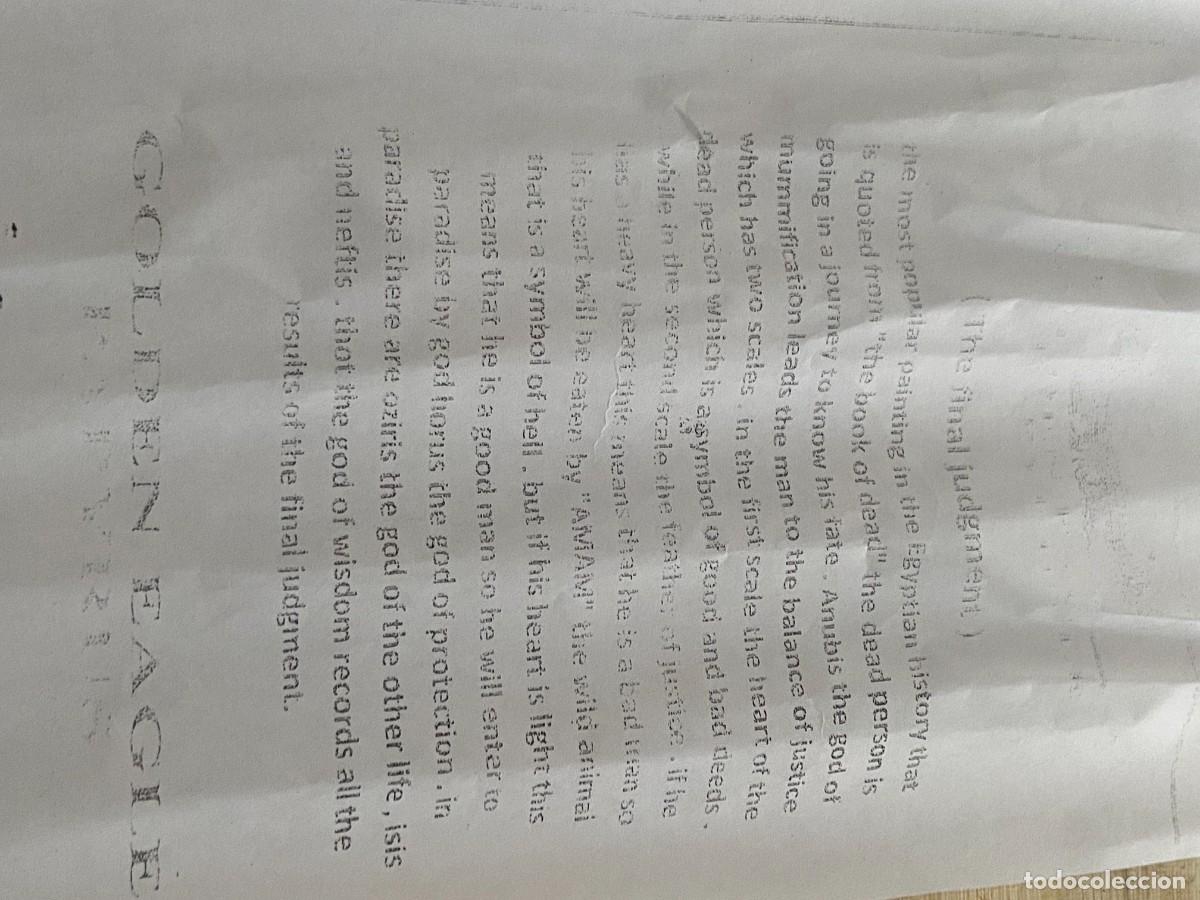 ( The final judgment )
the most popular painting in the Egyptian history that
is quoted from "the book of dead" the dead person is
going in a journey to know his fate . Anubis the god of
mummification leads the man to the balance of justice
which has two scales . in the first scale the heart of the
dead person which is a symbol of good and bad deeds ,
while in the second scale the feather of justice . if he
has a heavy heart this means that he is a bad man so
his heart will be eaten by "AMAM" the wild animal
that is a symbol of hell , but if his heart is light this
means that he is a good man so he will enter to
paradise by god horus the god of protection . in
paradise there are oziris the god of the other life , isis
and neftis . thot the god of wisdom records all the
results of the final judgment.
GOLDEN EAGLE
todocoleccion